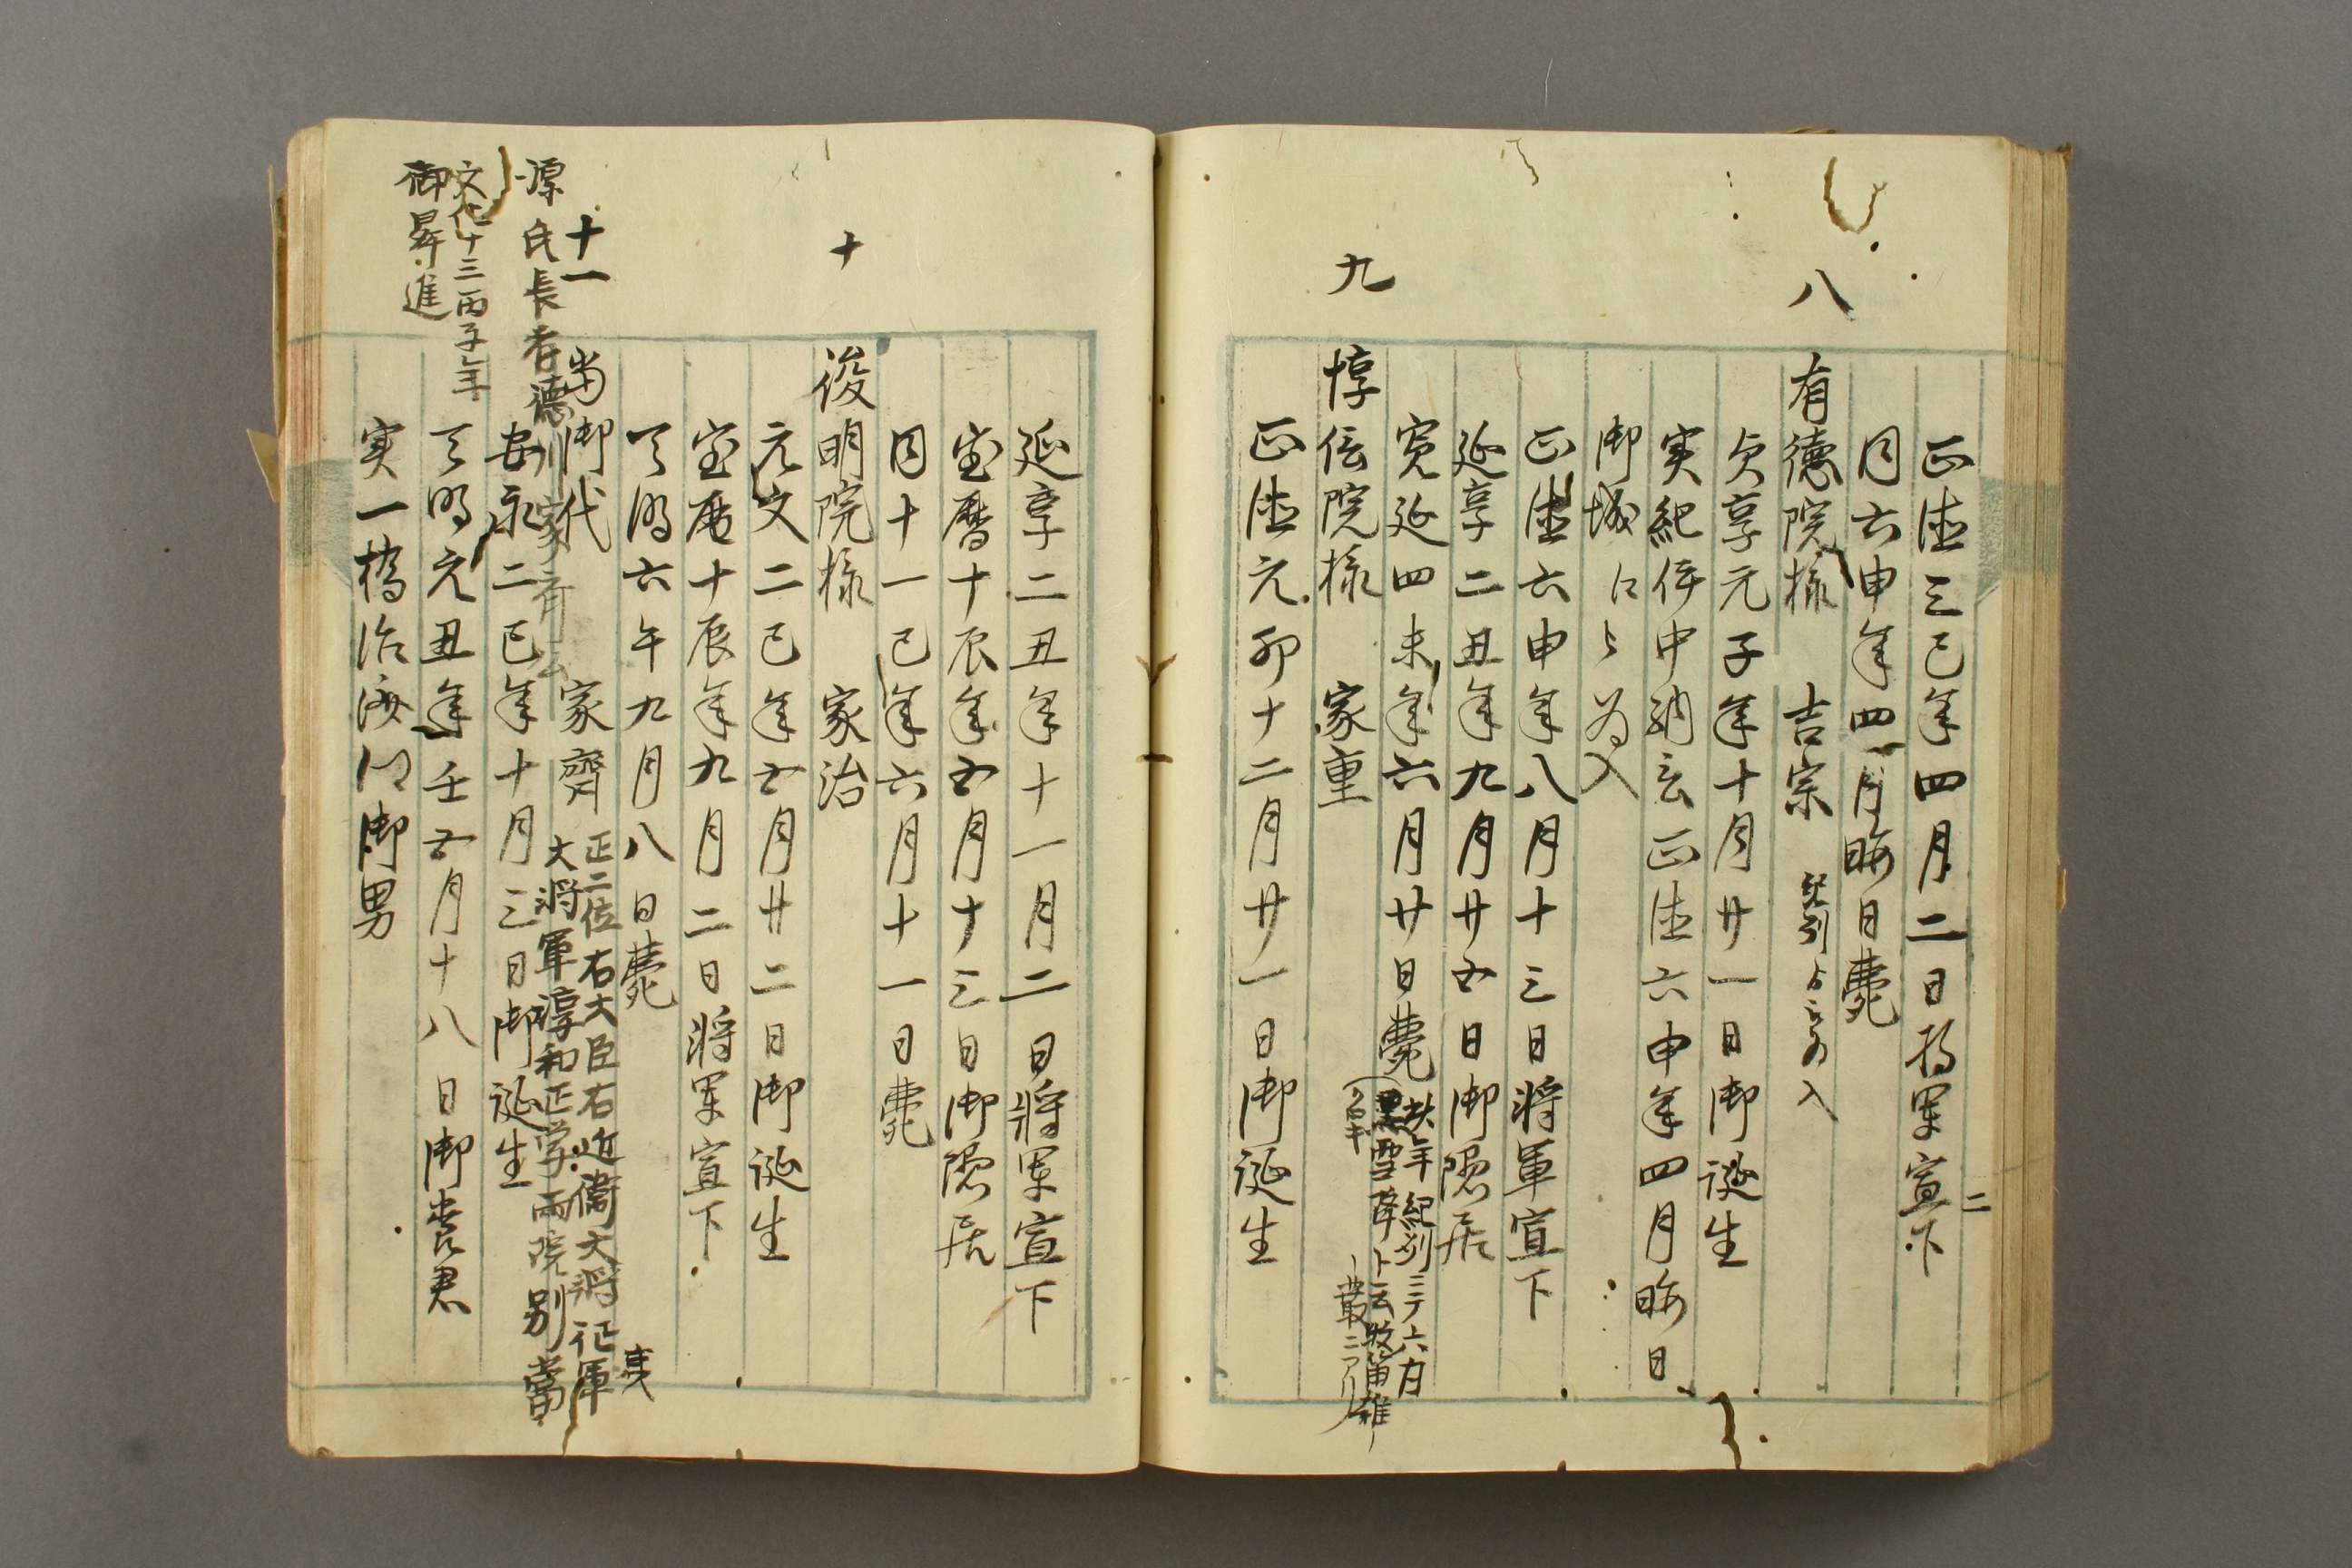 正徳三巳年四月二日将軍宣下
二
同六申年四月晦日薨
八
有徳院様 吉宗 紀州ゟ
貞享元子年十月廿一日御誕生
実紀伊中納言正徳六申年四月晦日
御城江被為入
正徳六申年八月十三日将軍宣下
延享二丑年九月廿五日御隠居
寛延四未年六月廿日薨
此年紀州ニテ六月
黒雪降ト云
叢ニアリ
九
惇信院様 家重
正徳元卯十二月廿一日御誕生
延享二丑年十一月二日将軍宣下
宝暦十辰年五月十三日御隠居
同十一巳年六月十一日薨
十
俊明院様 家治
元文二巳年五月廿二日御誕生
宝暦十辰年九月二日将軍宣下
天明六午年九月八日薨
十一
当御代 家齊
正二位右大臣右近衛大将征夷
大将軍淳和正学両院別當
源氏長者德川家斉公
安永二巳年十月三日御誕生
文化十三丙子年
御昇進
天明元丑年壬五月十八日御養君
実一橋治済公御男